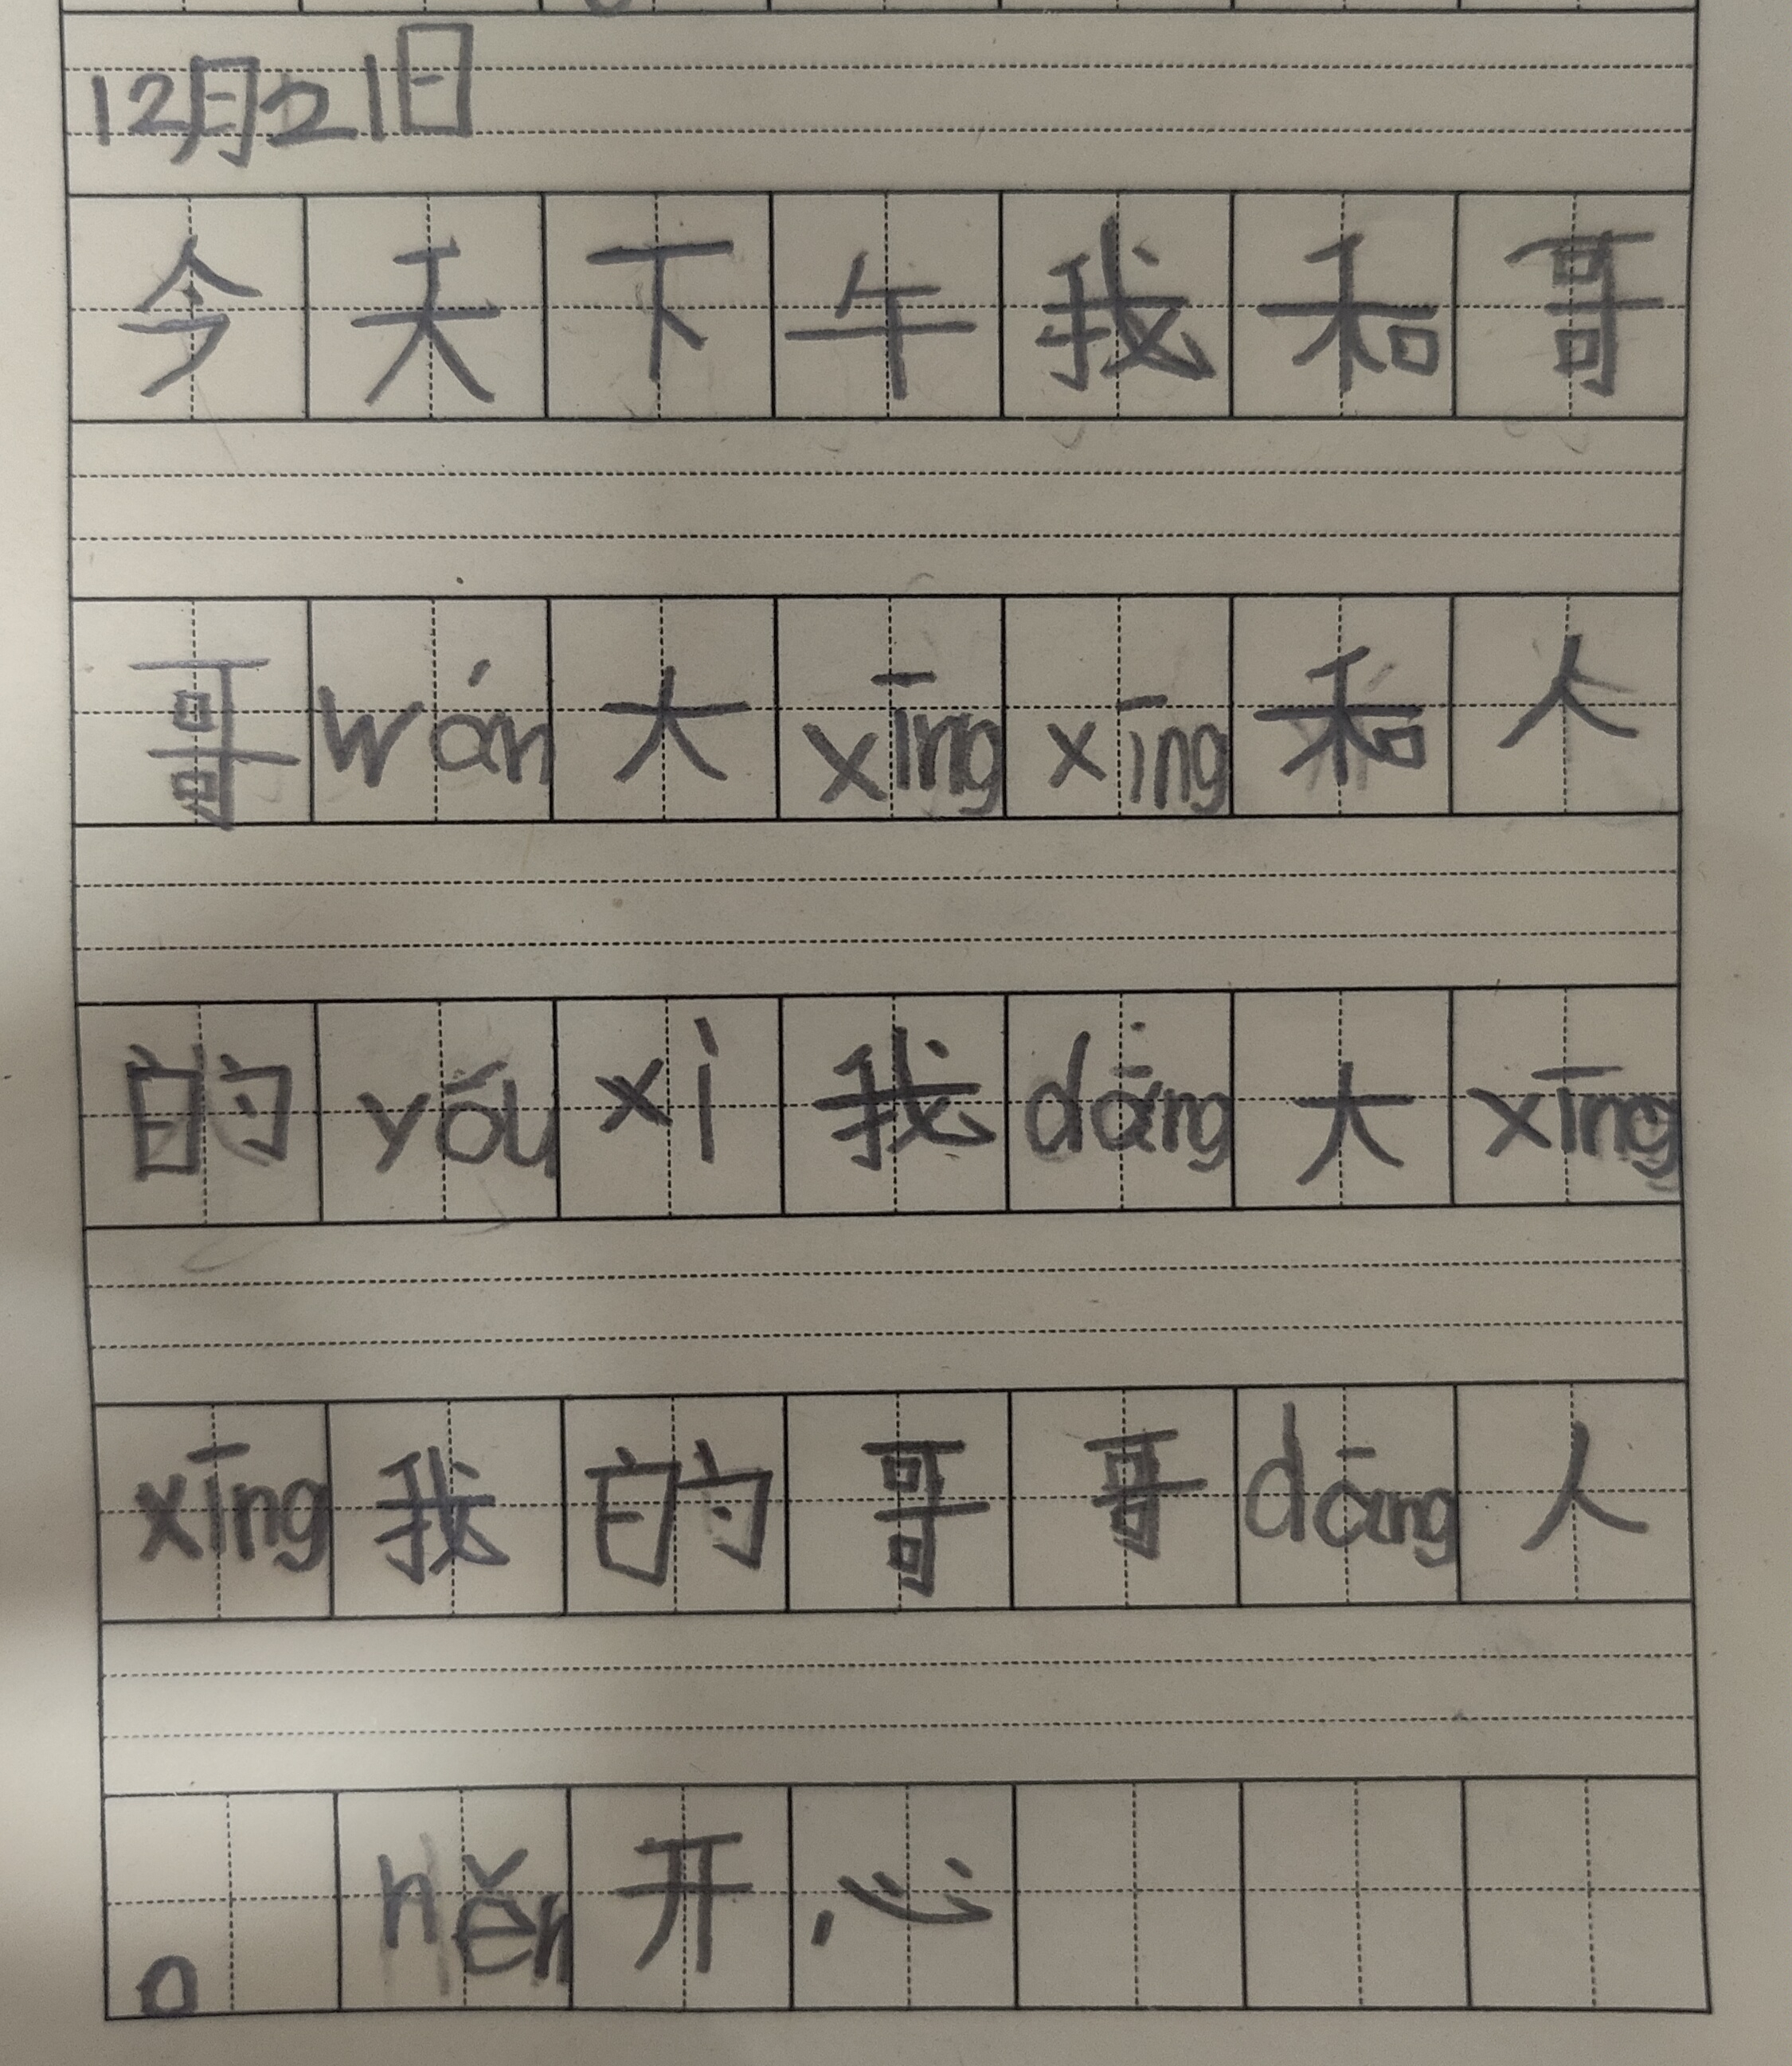 12月21日
今天下午我和哥
哥wán大xīngxīng和人
的yóuxì我dāng大xīng
xīng我的哥哥dāng人
。hěn开心